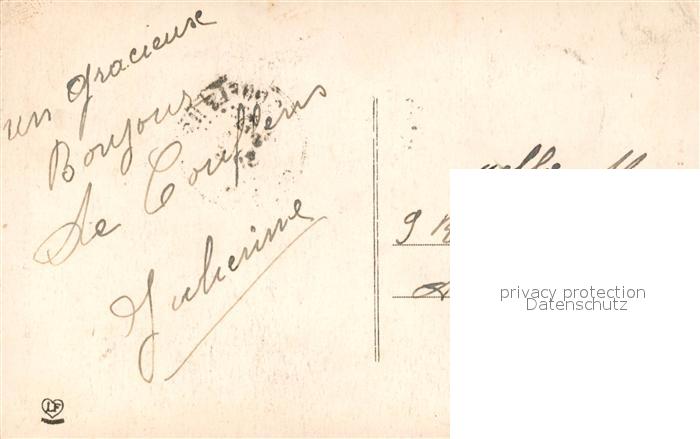 un gracieux
Bonjour
de Couflens
Julienne
9
privacy protection
Datenschutz
LF